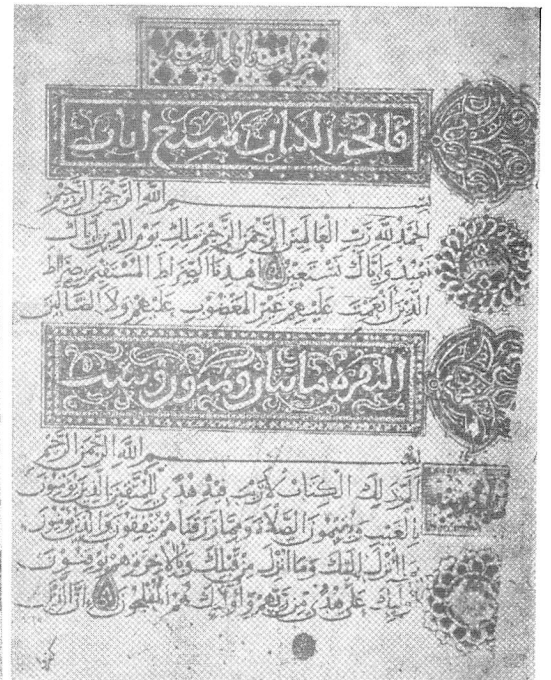 نزلت بالمدينة
فاتحة الكتاب سبع ايات
بسم الله الرحمن الرحيم
الحمد لله رب العالمين الرحمن الرحيم ملك يوم الدين اياك
نعبد واياك نستعين اهدنا الصراط المستقيم صراط
الذين انعمت عليهم غير المغضوب عليهم ولا الضالين
البقرة مايتان وثمنون وست
بسم الله الرحمن الرحيم
الم ذلك الكتاب لا ريب فيه هدى للمتقين الذين يومنون
بالغيب ويقيمون الصلاة ومما رزقناهم ينفقون والذين يومنون
بما انزل اليك وما انزل من قبلك وبالاخرة هم يوقنون
اوليك على هدى من ربهم واوليك هم المفلحون ان الذين